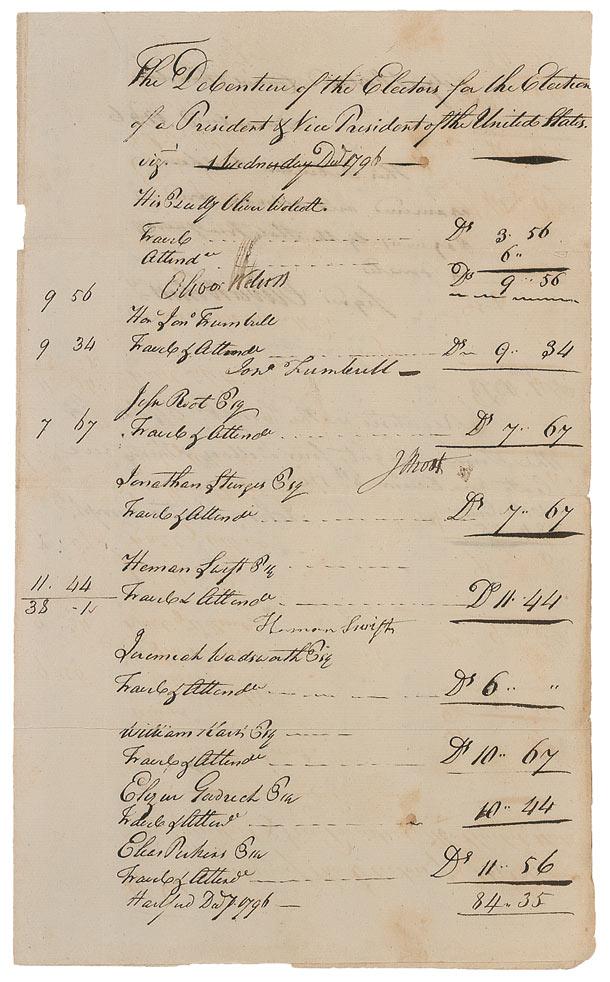 The Debenture of the Electors for the Election
of a President & Vice President of the United States.
viz. 1 Wednesday Decr 1796
His Excelly Oliver Wolcott.
Travel Ds 3. 56
Attendce 6"
Ds 9" 56
Oliver Wolcott
9 56
Honl Jonn Trumbull
9 34 Travel & Attendce Ds 9" 34
Jonn Trumbull
Jesse Root Esq
7 67 Travel & Attendce Ds 7" 67
J Root
Jonathan Sturges Esq
Travel & Attendce Ds 7" 67
Heman Swift Esq
11. 44 Travel & Attendce Ds 11. 44
38 -1
Heman Swift
Jeremiah Wadsworth Esq
Travel & Attendce Ds 6" "
William Hart Esq
Travel & Attendce Ds 10" 67
Elizur Goodrich Esq
Travel & Attence 10" 44
Elias Perkins Esq
Travel & Attendce Ds 11" 56
Hartford Decr 7. 1796 84" 35